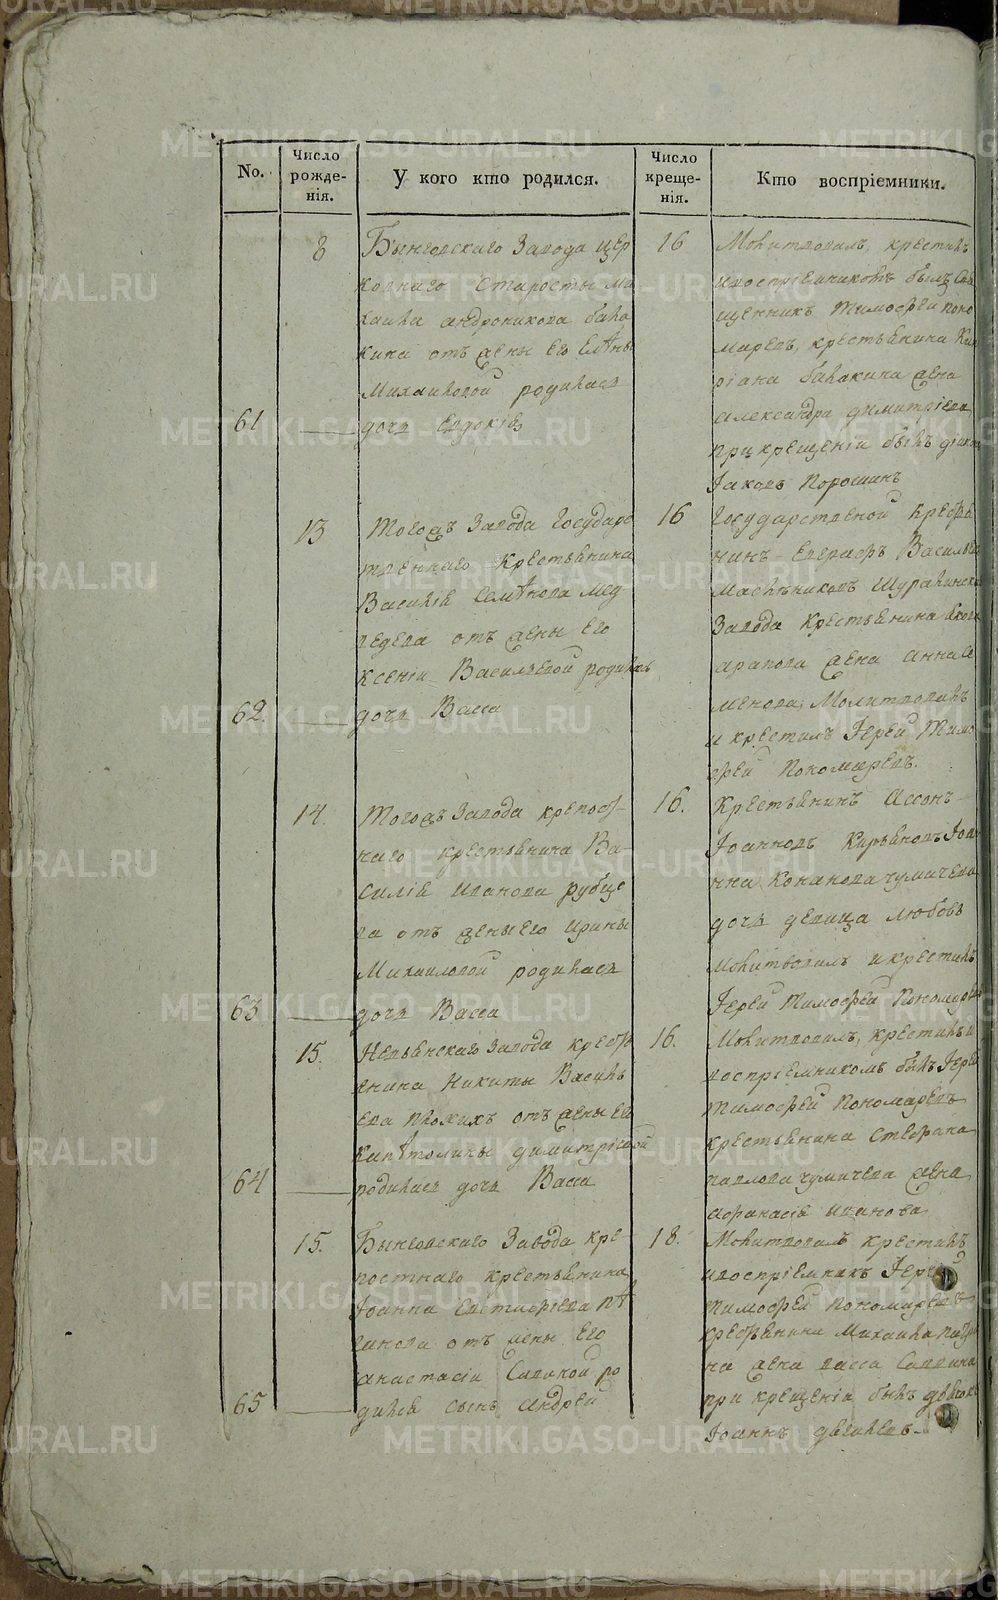 No.
Число рожде- нія.
У кого кто родился.
Число креще- нія.
Кто воспріемники.
61
8
Бынговскаго Завода цер
ковнаго Старосты Ми
хаила андроникова бала
кина отъ жены его елены
Михаиловой родилась
дочь евдокія
16
Молитвовалъ, крестилъ
ивоспріемникомъ былъ Свя
щенникъ Тимофей поно
маревъ, крестьянина Кип
ріана балакина жена
александра димитріева
прикрещеніи былъ діяконъ
Іаковъ Порошинъ
62.
13
Тогожъ Завода Государс
твеннаго Крестьянина
Василія Семенова мед
ведева отъ жены его
ксеніи Васильевой родилась
дочь Васса
16
Государственой Крестья
нинъ Евграфъ Васильевъ
масленниковъ Шуралинска
Завода Крестьянина
арапова жена анна Се
менова, Молитвовалъ
и крестилъ Іерей Тимо
фей Пономаревъ.
63
14.
Тогожъ Завода крепост-
наго крестьянина Ва-
силія иванова рубцо
ва отъ жены его ирины
Михаиловой родилась
дочь Васса
16.
Крестьянинъ Ассонъ
Іоанновъ Кирьяновъ Іоа
нна Кононова чумичева
дочь девица любовь
Молитвовалъ икрестилъ
Іерей Тимофей Пономарев
64
15.
Невьянскаго Завода кресть
янина Никиты Василь
ева отъ жены его
капитолины димитріевой
родилась дочь Васса
16.
Молитвовалъ, крестилъ и
воспріемникомъ былъ Іерей
Тимофей Пономаревъ
крестьянина Стефана
павлова чумичева жена
афанасія иванова
65
15.
Бынговскаго Завода кре-
постнаго крестьянина
Іоанна Евстафіева
отъ жены Его
анастасіи Савиной ро
дился сынъ Андрей
18.
Молитвовалъ крестилъ
ивоспріемникъ Іерей
Тимофей Пономаревъ
крестьянина Михаила
жена васса Саввина
при крещеніи былъ дьякон
Іоаннъ двеглевъ
METRIKI.GASO-URAL.RU